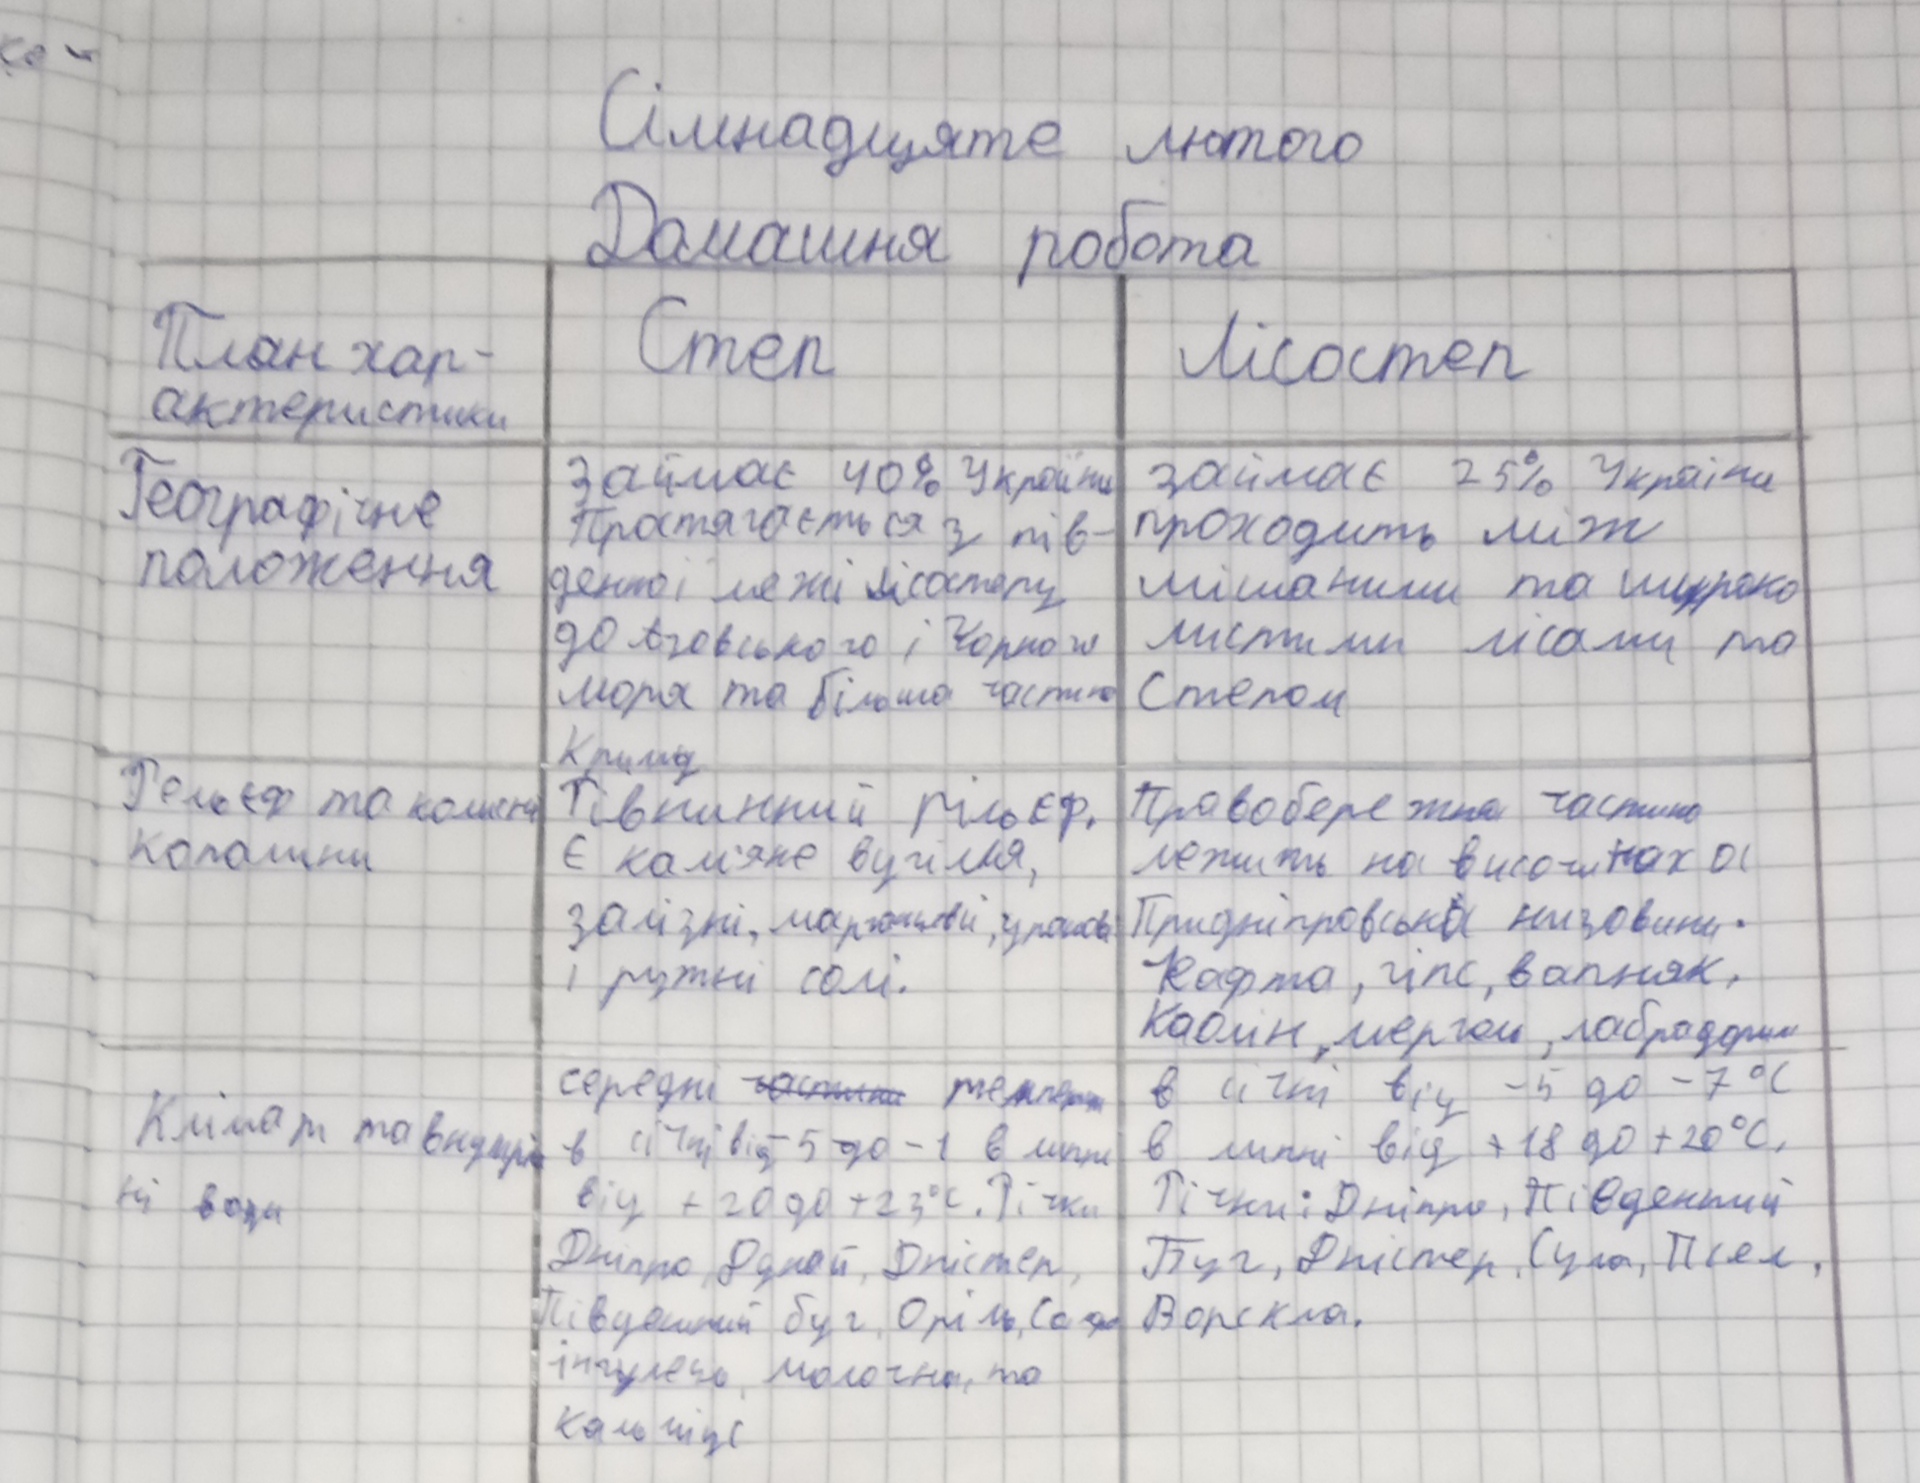 Сімнадцяте лютого
Домашня робота
План хар-
актеристики
Степ
Лісостеп
Географічне
положення
Займає 40% України
Простягається з пів-
денної межі лісостепу
до Азовського і Чорного
моря та більша частина
Криму
займає 25% України
проходить між
мішаними та широко
листими лісами та
Степом
Рельєф та
Копалини
Рівнинний рільєф.
Є кам'яне вугілля,
залізні, марганцеві, уранові
і ружні солі.
Правобережна частина
лежить на височинах а
Придніпровська низовина.
Нафта, гіпс, вапняк,
Каолін, мергель, лабрадорит
Клімат та внутріш
ні води
середні темпер
в січні від -5 до -1 в липні
від +20 до +23°C. Річки
Дніпро, Дунай, Дністер,
Південний буг, Оріль,
інгулець, молочна, та
кальміус
в січні від -5 до -7°C
в липні від +18 до +20°C,
Річки: Дніпро, Південний
Буг, Дністер, Сула, Псел,
Ворскла.